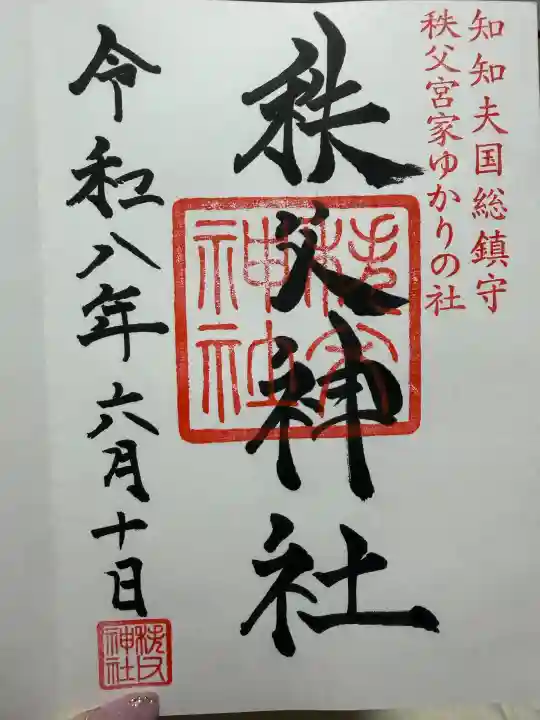 知知夫国総鎮守
秩父宮家ゆかりの社
秩父神社
令和八年六月十日
秩父
神社